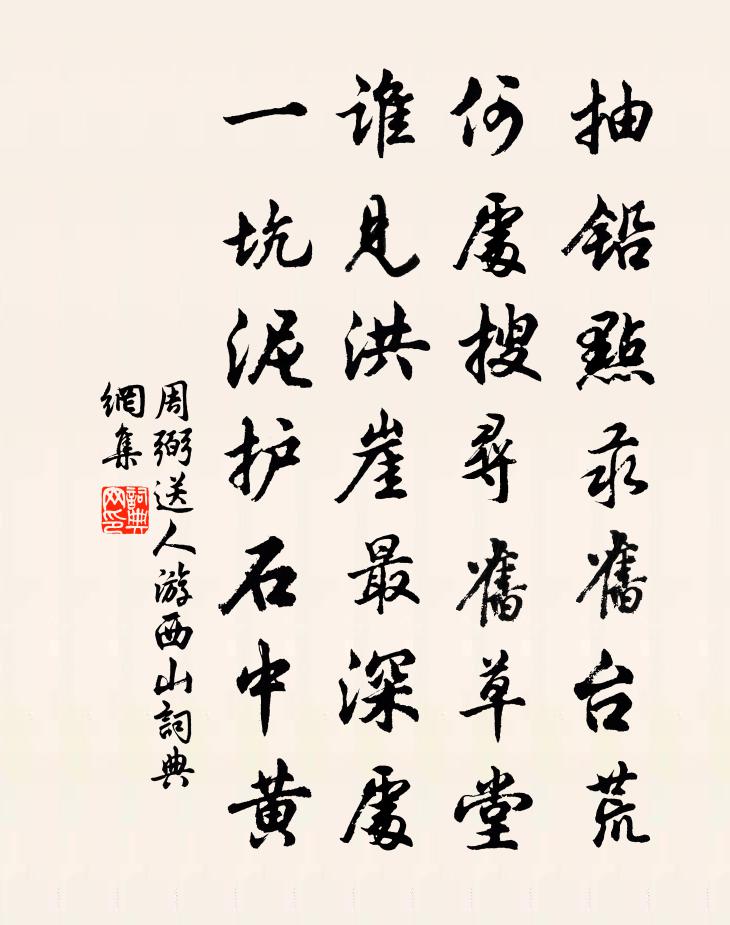 抽鉛點汞舊台荒
何處搜尋舊草堂
谁見洪崖最深處
一坑泥护石中黄
周弼送人游西山詞典
網集
詞典
网印